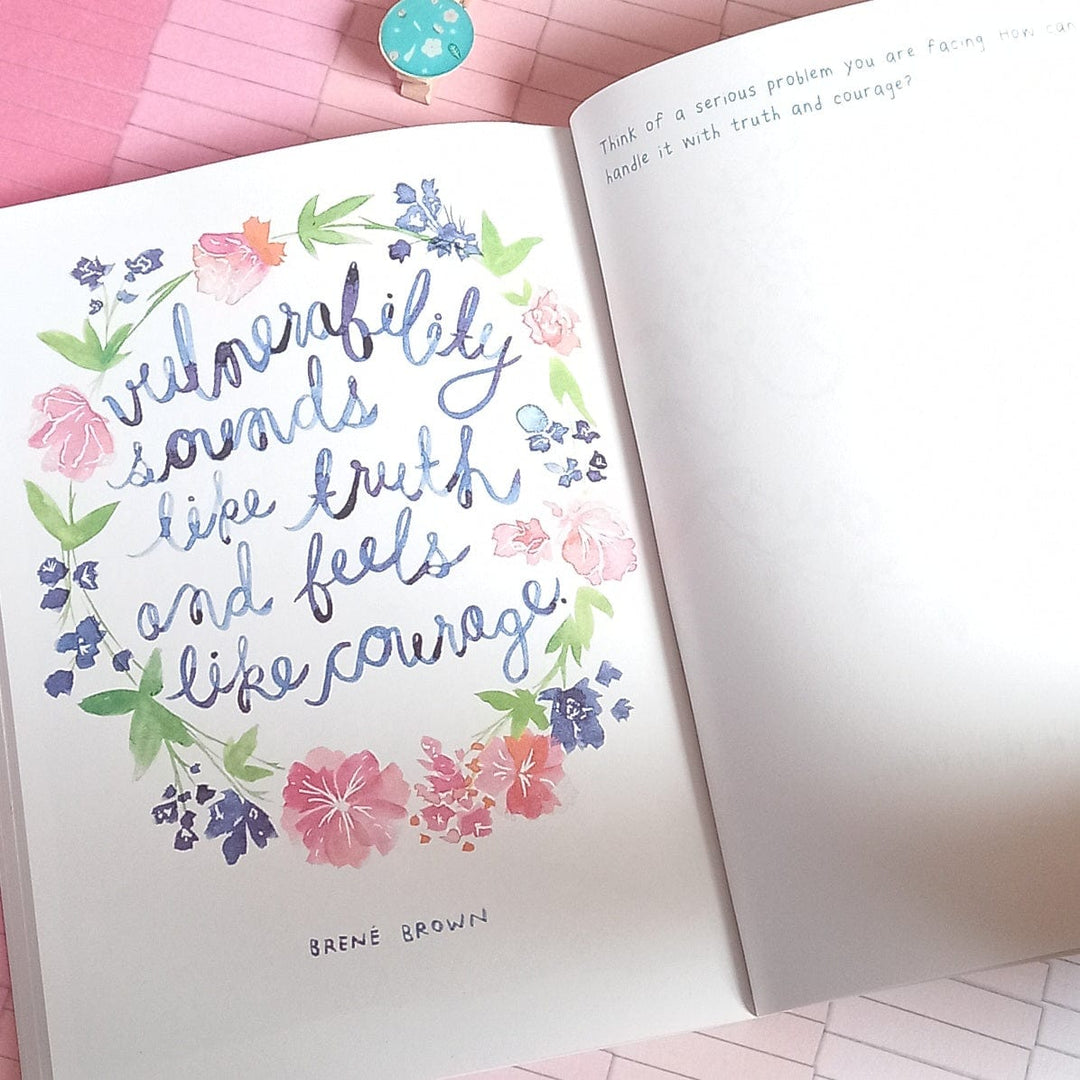 vulnerability
sounds
like truth
and feels
like courage.
BRENÉ BROWN
Think of a serious problem you are facing How can
handle it with truth and courage?